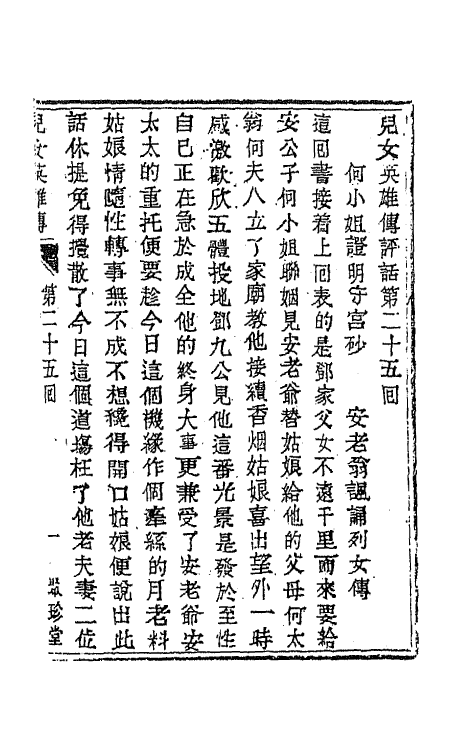 兒女英雄傳評話第二十五回
何小姐證明守宮砂 安老翁諷誦列女傳
這回書接着上回表的是鄧家父女不遠千里而來要給
安公子何小姐聯姻見安老爺替姑娘給他的父母何太
翁何夫人立了家廟教他接續香烟姑娘喜出望外一時
感激歐欣五體投地鄧九公見他這番光景是發於至性
自己正在急於成全他的終身大事更兼受了安老爺安
太太的重托便要趁今日這個機緣作個牽絲的月老料
姑娘情隨性轉事無不成不想纔得開口姑娘便說出此
話休提免得攪散了今日這個道塲枉了他老夫妻二位
兒女英雄傳 第二十五回 一 聚珍堂